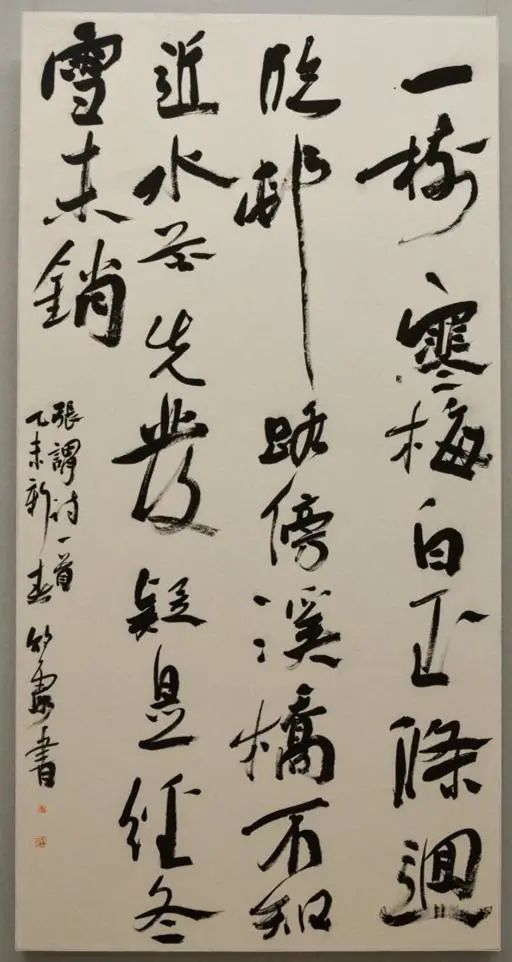 一樹寒梅白玉條迥
臨邨路傍溪橋不知
近水花先發疑是經冬
雪未銷
張謂诗一首
乙未新春竹書